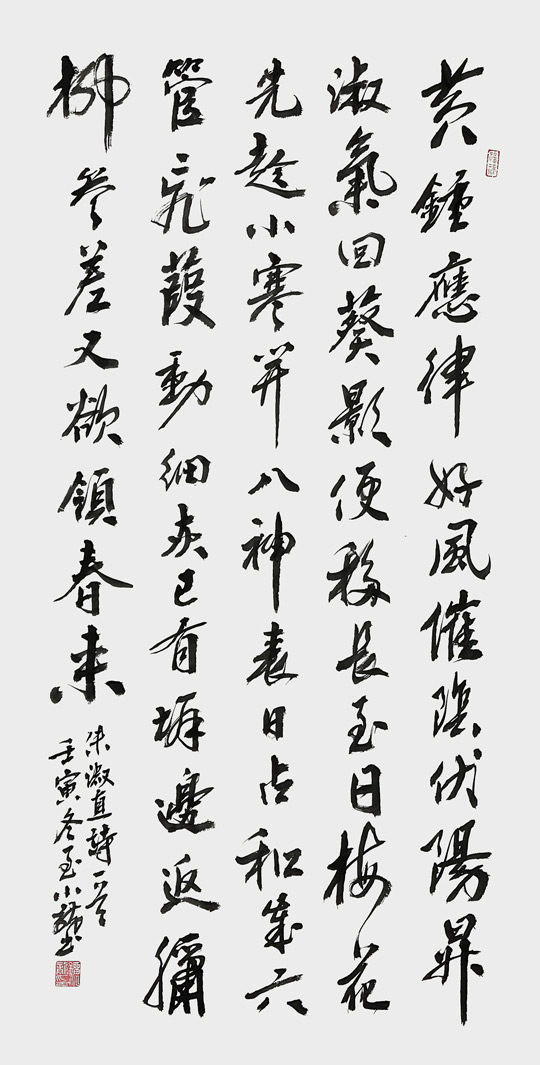 黄鍾應律好風催陰伏陽昇
淑氣回葵影便移長至日梅花
先趁小寒开八神表日占和歲六
管飛葭動細灰已有邊迎臘
柳參差又欲領春来
朱淑真詩一首
壬寅冬至小書